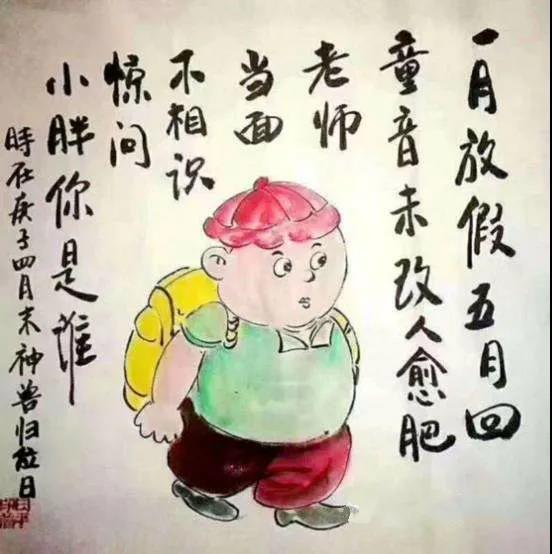 一月放假五月回
童音未改人愈肥
老师
当面
不相识
惊问
小胖你是谁
時在庚子四月末神兽归校日